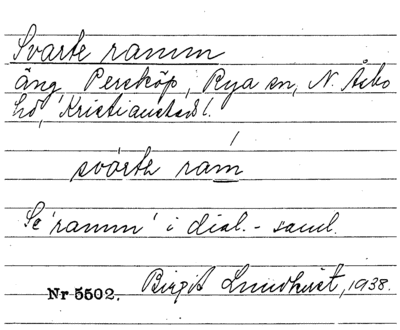 Svarte ramm
äng, Persköp, Rya sn, N. Åsbo
hd, Kristianstad l.
svárte ram
Se 'ramm' i dial.-saml.
Nr 5502. Birgit Lundqvist, 1938.